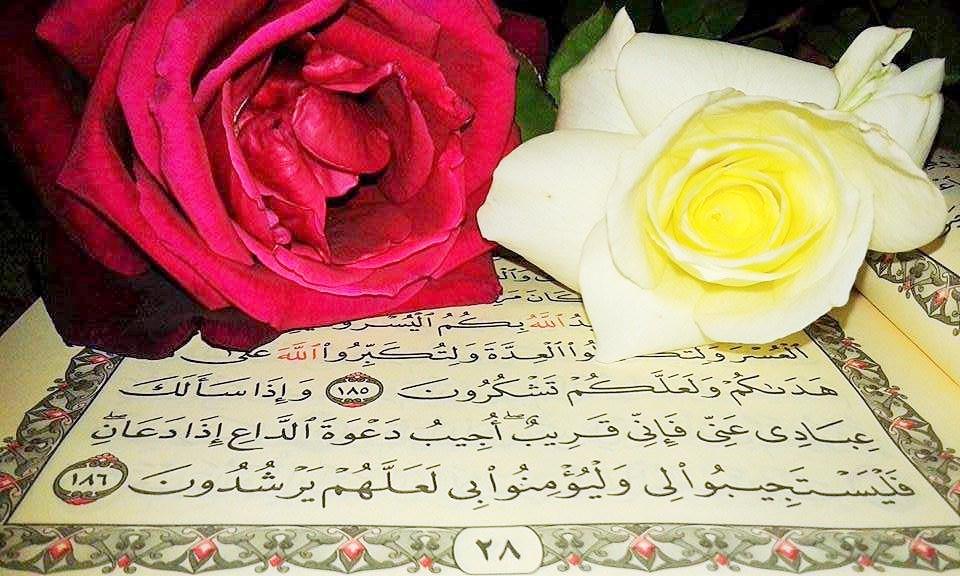 بِكُمُ ٱلْيُسْرَ وَلَا
ٱلْعُسْرَ وَلِتُكْمِلُوا۟ ٱلْعِدَّةَ وَلِتُكَبِّرُوا۟ ٱللَّهَ عَلَىٰ
هَدَىٰكُمْ وَلَعَلَّكُمْ تَشْكُرُونَ ١٨٥ وَإِذَا سَأَلَكَ
عِبَادِى عَنِّى فَإِنِّى قَرِيبٌ ۖ أُجِيبُ دَعْوَةَ ٱلدَّاعِ إِذَا دَعَانِ ۖ
فَلْيَسْتَجِيبُوا۟ لِى وَلْيُؤْمِنُوا۟ بِى لَعَلَّهُمْ يَرْشُدُونَ ١٨٦
٢٨